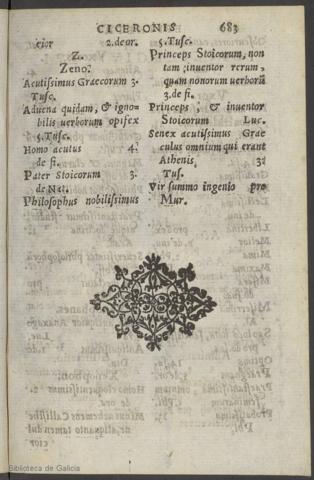 CICERONIS 683
cior 2.de or.
Z.
Zeno.
Acutissimus Graecorum 3.
Tusc.
Aduena quidam, & igno-
bilis uerborum opifex
5.Tusc.
Homo acutus 4.
de fi.
Pater Stoicorum 3.
de Nat.
Philosophus nobilissimus
5.Tusc.
Princeps Stoicorum, non
tam inuentor rerum,
quam nouorum uerborū
3.de fi.
Princeps, & inuentor
Stoicorum Luc.
Senex acutissimus Grae
culus omnium qui erant
Athenis, 3.
Tus.
Vir summo ingenio pro
Mur.
Biblioteca de Galicia